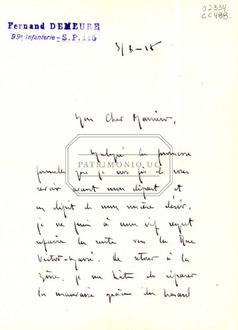 02334
CC488
Fernand DEMEURE
99e Infanterie - S.P. 115
3/3-15
Mon Cher Monsieur,
Malgré la promesse
formelle que je vous fis de vous
revoir avant mon départ et
en dépit de mon sincère désir,
je ne puis à mon vif regret
la route vers la Rue
Victor-Massé. De retour à la
zône, je me hâte de réparer
la mauvaise grâce du hasard
PATRIMONIO UC